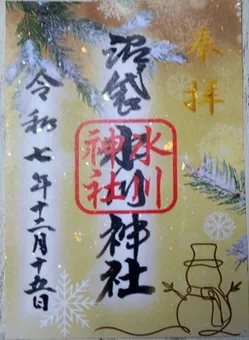 奉拝
沼袋氷川神社
氷川神社
令和七年十二月十五日